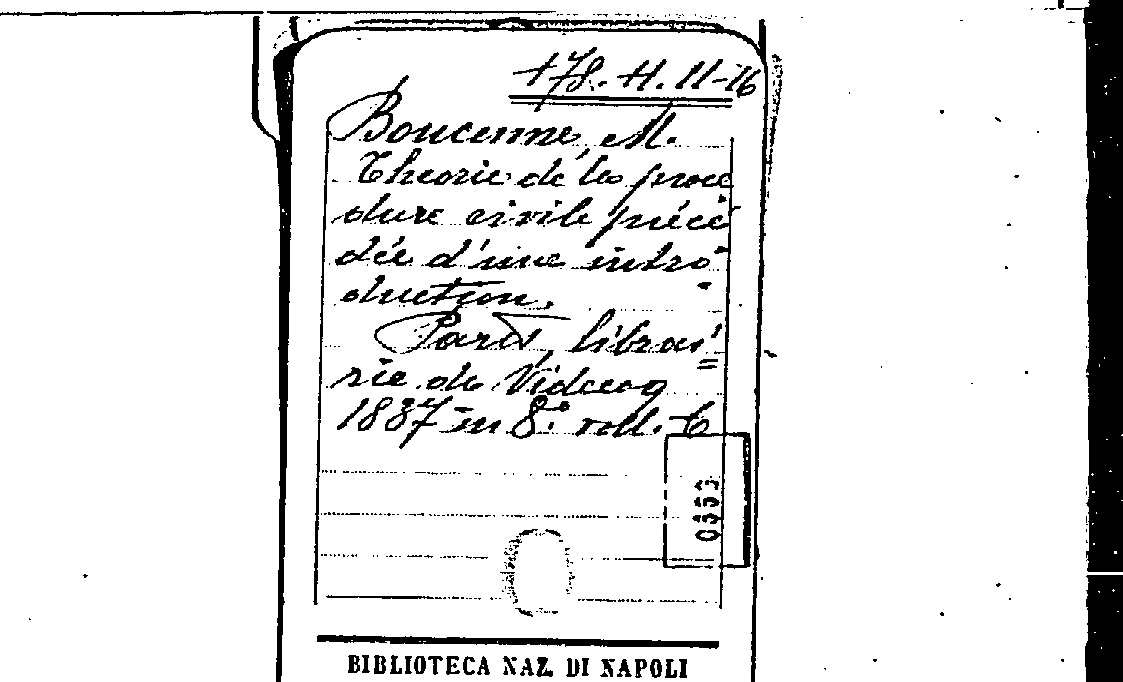 178. H. 11-16
Boucenne, M.
Theorie de la proce
dure civile précé
dée d'une intro
duction.
Paris, librai=
rie de Videcoq
1837 in 8.° voll. 6
0333
BIBLIOTECA NAZ. DI NAPOLI